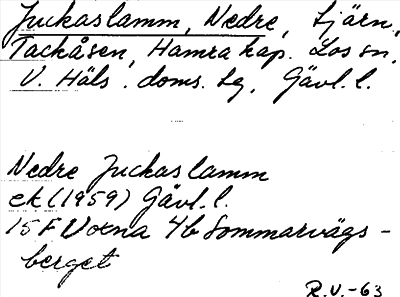 Juckaslamm, Nedre, Tjärn,
Tackåsen, Hamra kap. Los sn,
V. Häls. doms. lg, Gävl. l.
Nedre Juckaslamm
ek (1959) Gävl. l.
15 F Voxna 4b Sommarvägs-
berget
R.V.-63